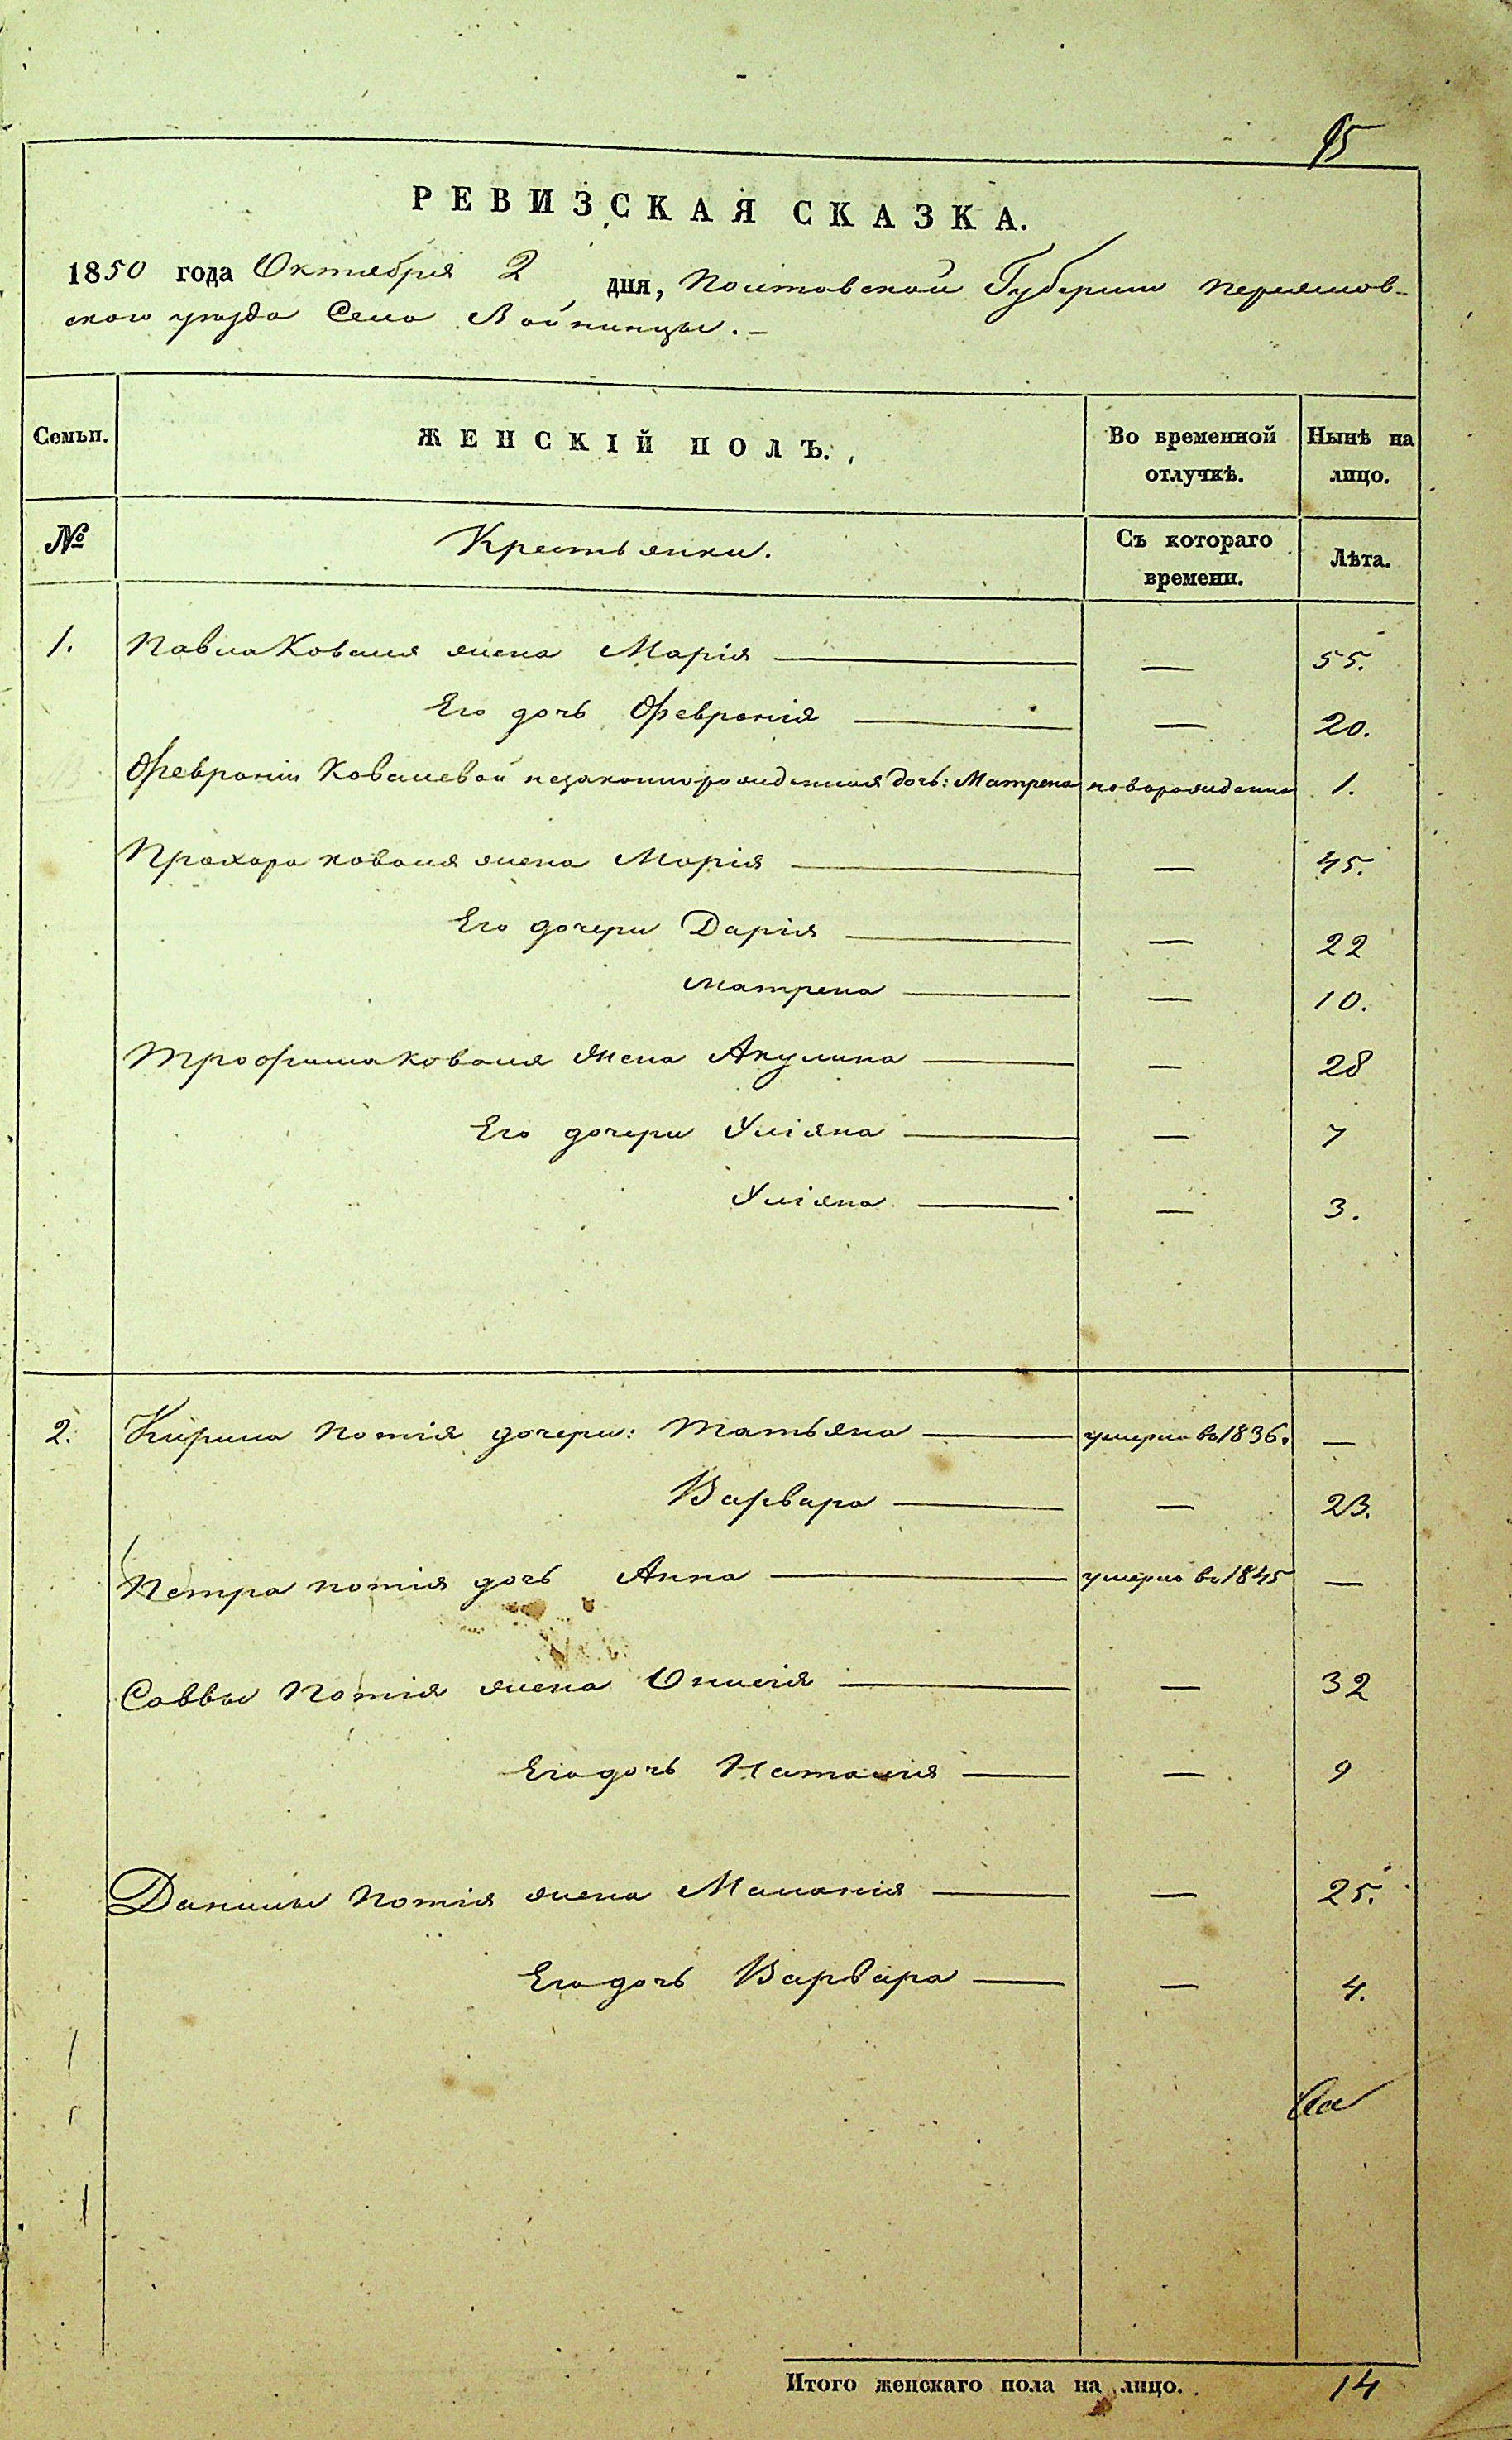 95
РЕВИЗСКАЯ СКАЗКА.
1850 года Октября 2 дня, Полтавской Губернии Переяслов-
ского уезда Села Войнинцы. —
Семьи. ЖЕНСКІЙ ПОЛЪ. Во временной отлучкѣ. Нынѣ на лицо.
№ Крестьянки. Съ котораго времени. Лѣта.
1. Павла Коваля жена Марія — — 55.
Его дочь Февронія — — 20.
Февроніи Ковалевой незаконнорожденная дочь: Матрена новорожденна 1.
Прохора коваля жена Марія — — 45.
Его дочери Дарія — — 22
Матрена — — 10.
Трофима коваля жена Акулина — — 28
Его дочери Уліяна — — 7
Уліяна — — 3.
2. Кирила Потія дочери: Татьяна — умерла въ 1836. —
Варвара — — 23.
Петра потія дочь Анна — умерла въ 1845 —
Саввы Потія жена — — 32
Его дочь Наталия — — 9
Данилы Потія жена Маланія — — 25.
Его дочь Варвара — — 4.
Итого женскаго пола на лицо. 14